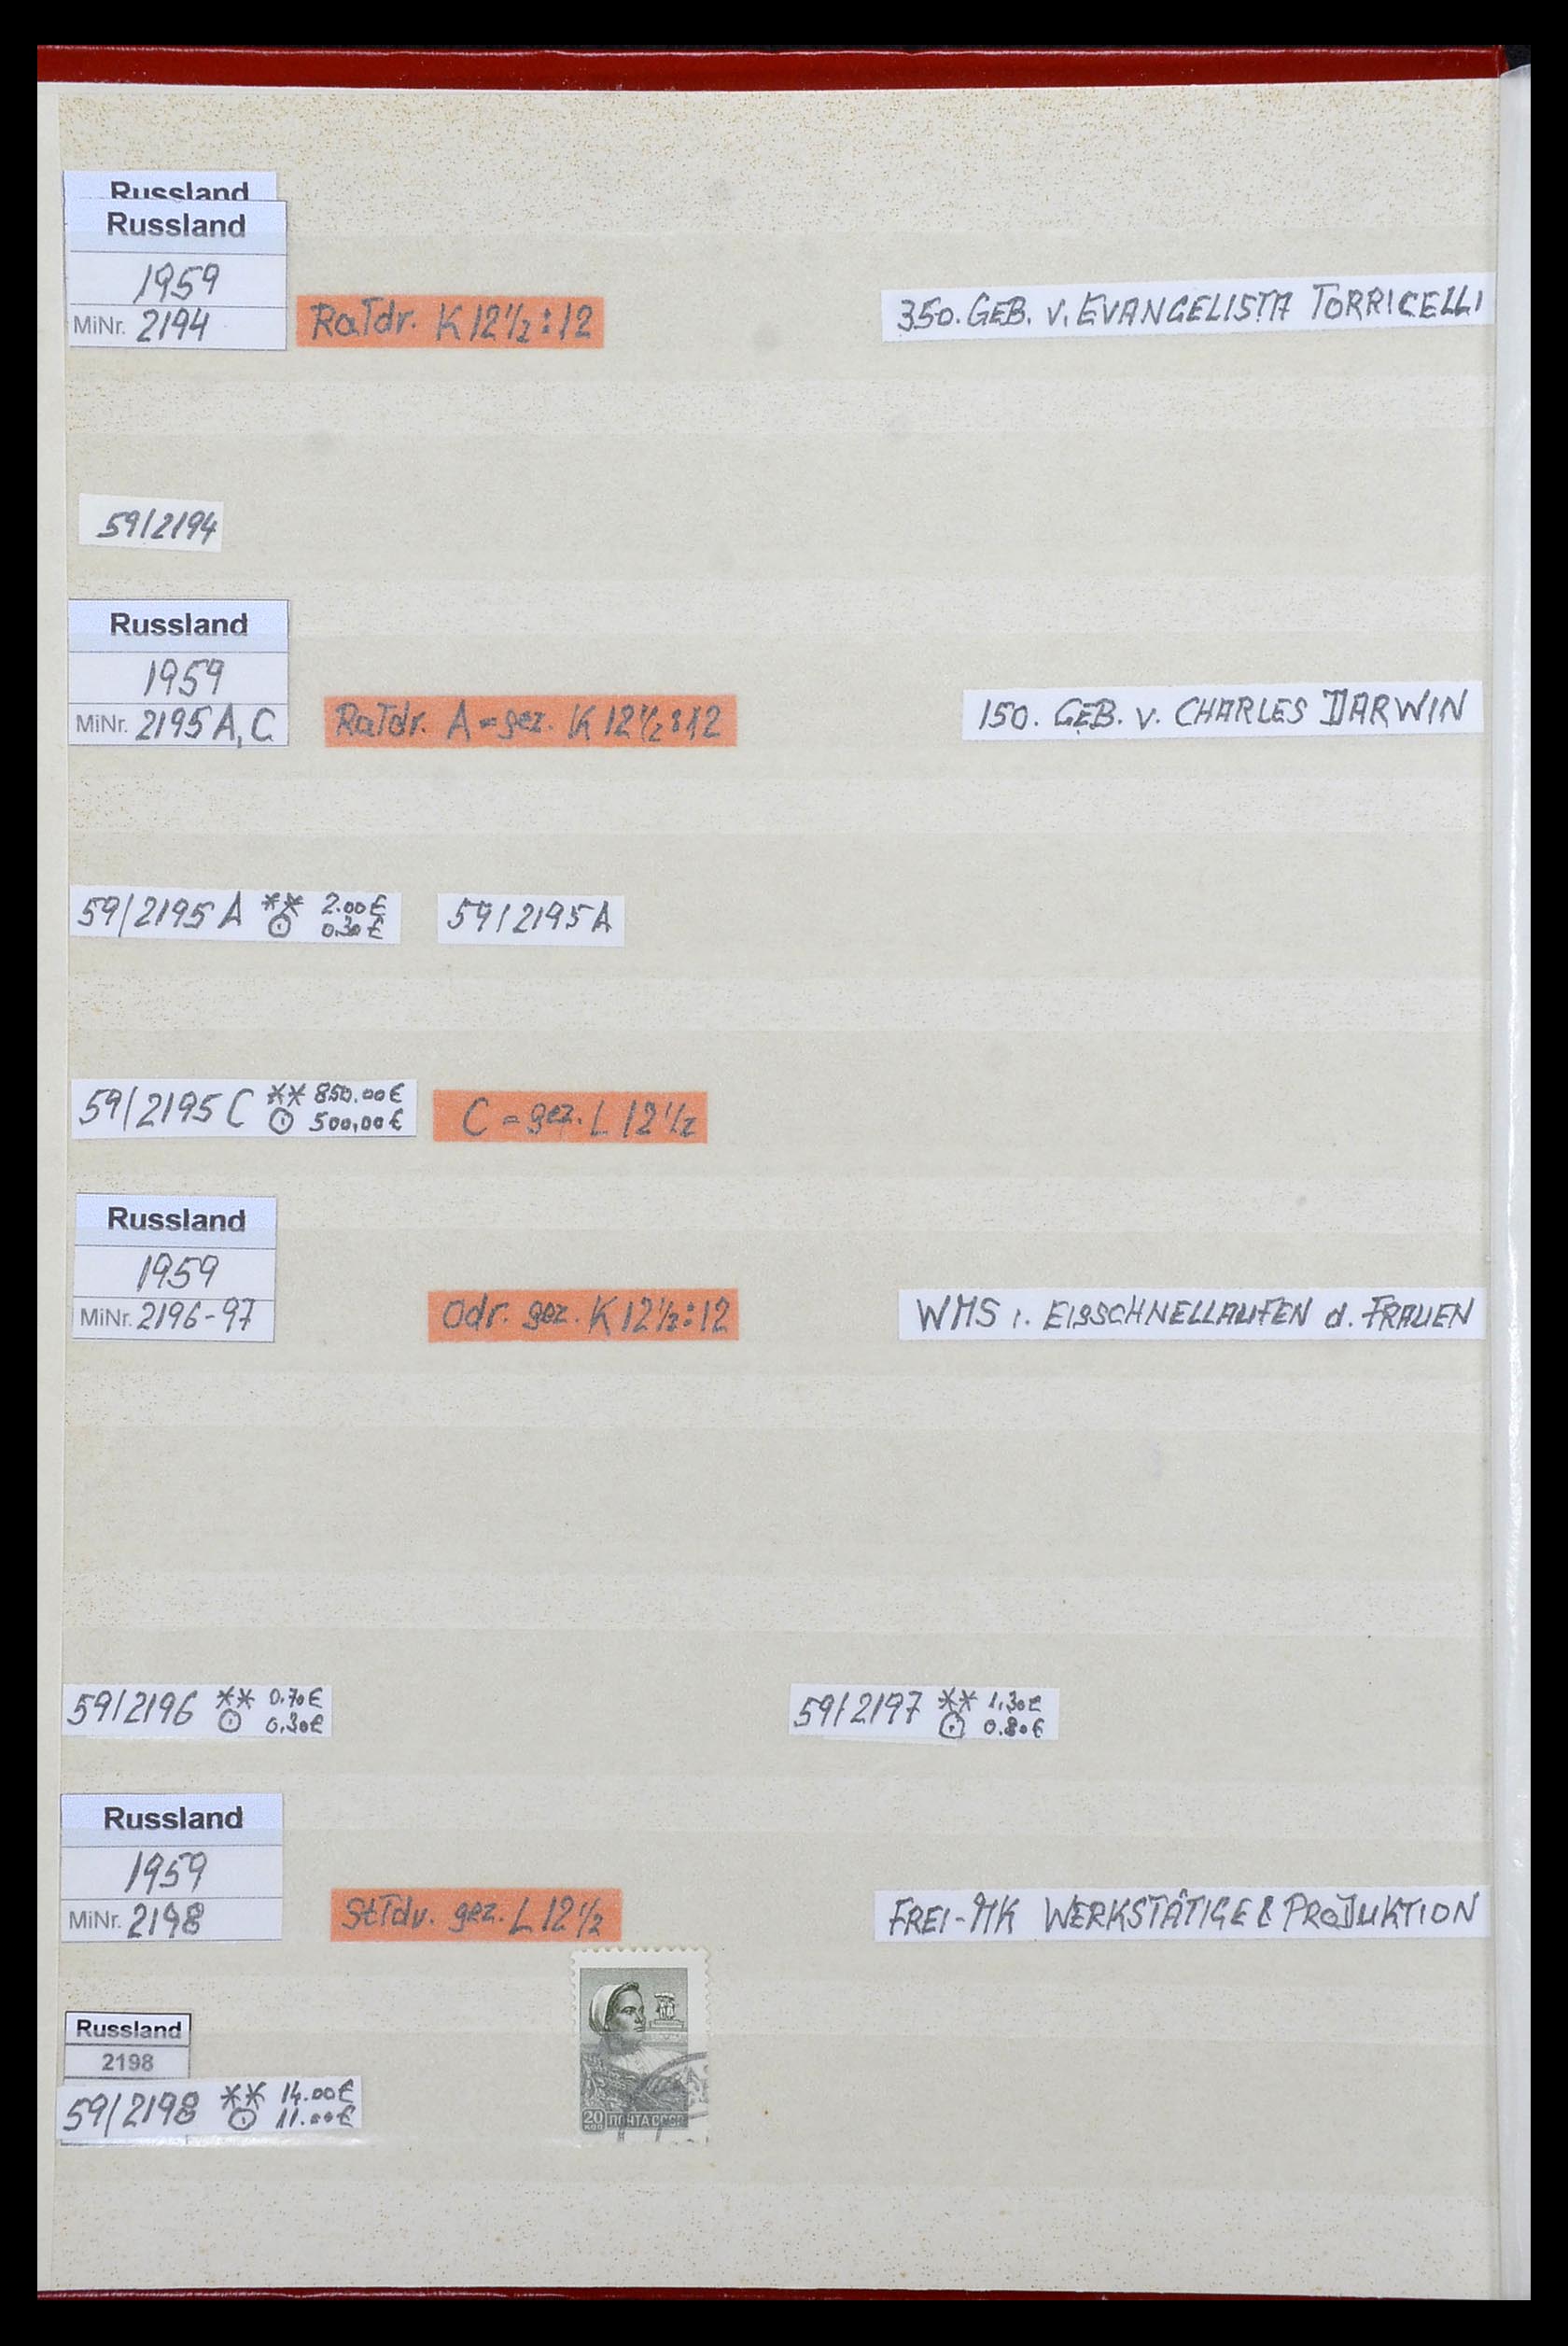 Russland
Russland
1959
MiNr. 2194
RaTdr. K 12½:12
350. GEB. V. EVANGELISTA TORRICELLI
59/2194
Russland
1959
MiNr. 2195 A, C
RaTdr. A=gez. K 12½:12
150. GEB. V. CHARLES DARWIN
59/2195 A ** 2.00€
⊙ 0.30€
59/2195 A
59/2195 C ** 850.00€
⊙ 500,00€
C = gez. L 12½
Russland
1959
MiNr. 2196-97
Odr. gez. K 12½:12
WMS i. EISSCHNELLAUFEN d. FRAUEN
59/2196 ** 0.70€
⊙ 0.30€
59/2197 ** 1.30€
⊙ 0.80€
Russland
1959
MiNr. 2198
StTdr. gez. L 12½
FREI-MK WERKSTÄTIGE & PRODUKTION
Russland
2198
59/2198 ** 14.00€
⊙ 11.00€
20 ПОЧТА СССР
КОП